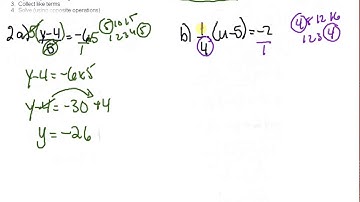 3. Collect like terms
4. Solve (using opposite operations)
2a) 5(y-4)/5 = -6x5/1 5 10 15
1 2 3 4 5
y-4=-6x5
y-4=-30+4
y=-26
b) 1/4(u-5)=-2/1 4 8 12 16
1 2 3 4